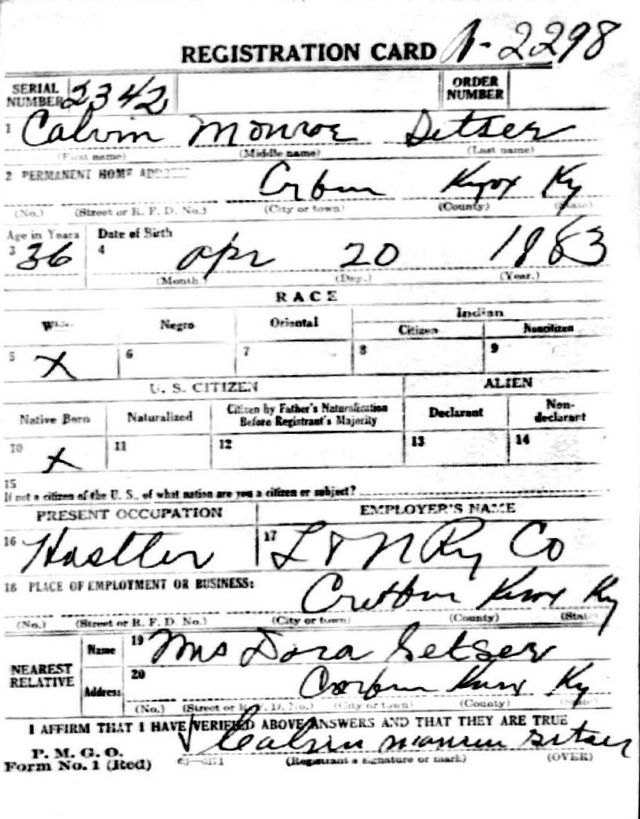 REGISTRATION CARD A-2298
SERIAL NUMBER 2342 ORDER NUMBER
1 Calvin Monroe Setser
(First name) (Middle name) (Last name)
2 PERMANENT HOME ADDRESS Crbin Knox Ky
(No.) (Street or R. F. D. No.) (City or town) (County) (State)
Age in Years Date of Birth
3 36 4 Apr 20 1883
(Month) (Day.) (Year.)
RACE
White Negro Oriental Indian
Citizen Noncitizen
5 X 6 7 8 9
U. S. CITIZEN ALIEN
Native Born Naturalized Citizen by Father's Naturalization Before Registrant's Majority Declarant Non-declarant
10 X 11 12 13 14
15
If not a citizen of the U. S., of what nation are you a citizen or subject?
PRESENT OCCUPATION EMPLOYER'S NAME
16 Hostler 17 L & N Ry Co
18 PLACE OF EMPLOYMENT OR BUSINESS:
Knox Ky
(No.) (Street or R. F. D. No.) (City or town) (County) (State)
NEAREST RELATIVE Name 19 Mrs Dora Setser
Address 20 Corbin Knox Ky
(No.) (Street or R. F. D. No.) (City or town) (County) (State)
I AFFIRM THAT I HAVE VERIFIED ABOVE ANSWERS AND THAT THEY ARE TRUE
P. M. G. O.
Form No. 1 (Red) Calvin Monroe Setser
(Registrant's signature or mark) (OVER)